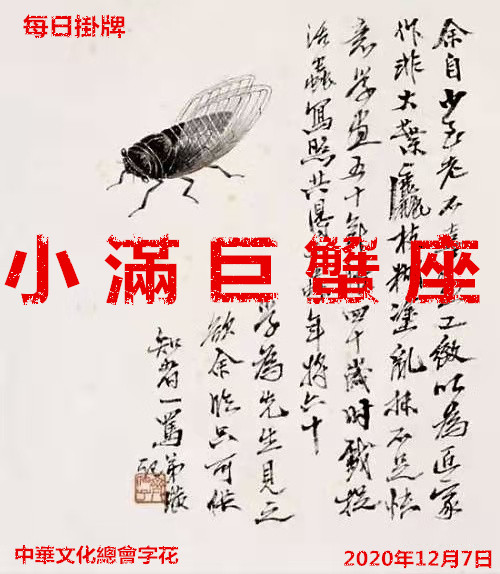 每日掛牌
小滿巨蟹座
余自少至老不喜工緻以為匠家
作非大葉麤枝糊塗亂抹不足快
意學畫五十年四十歲時戲捉
活蟲寫照共得年將六十
學為先生見之
欲余臨只可供
知者一罵弟璜
記
中華文化總會字花
2020年12月7日